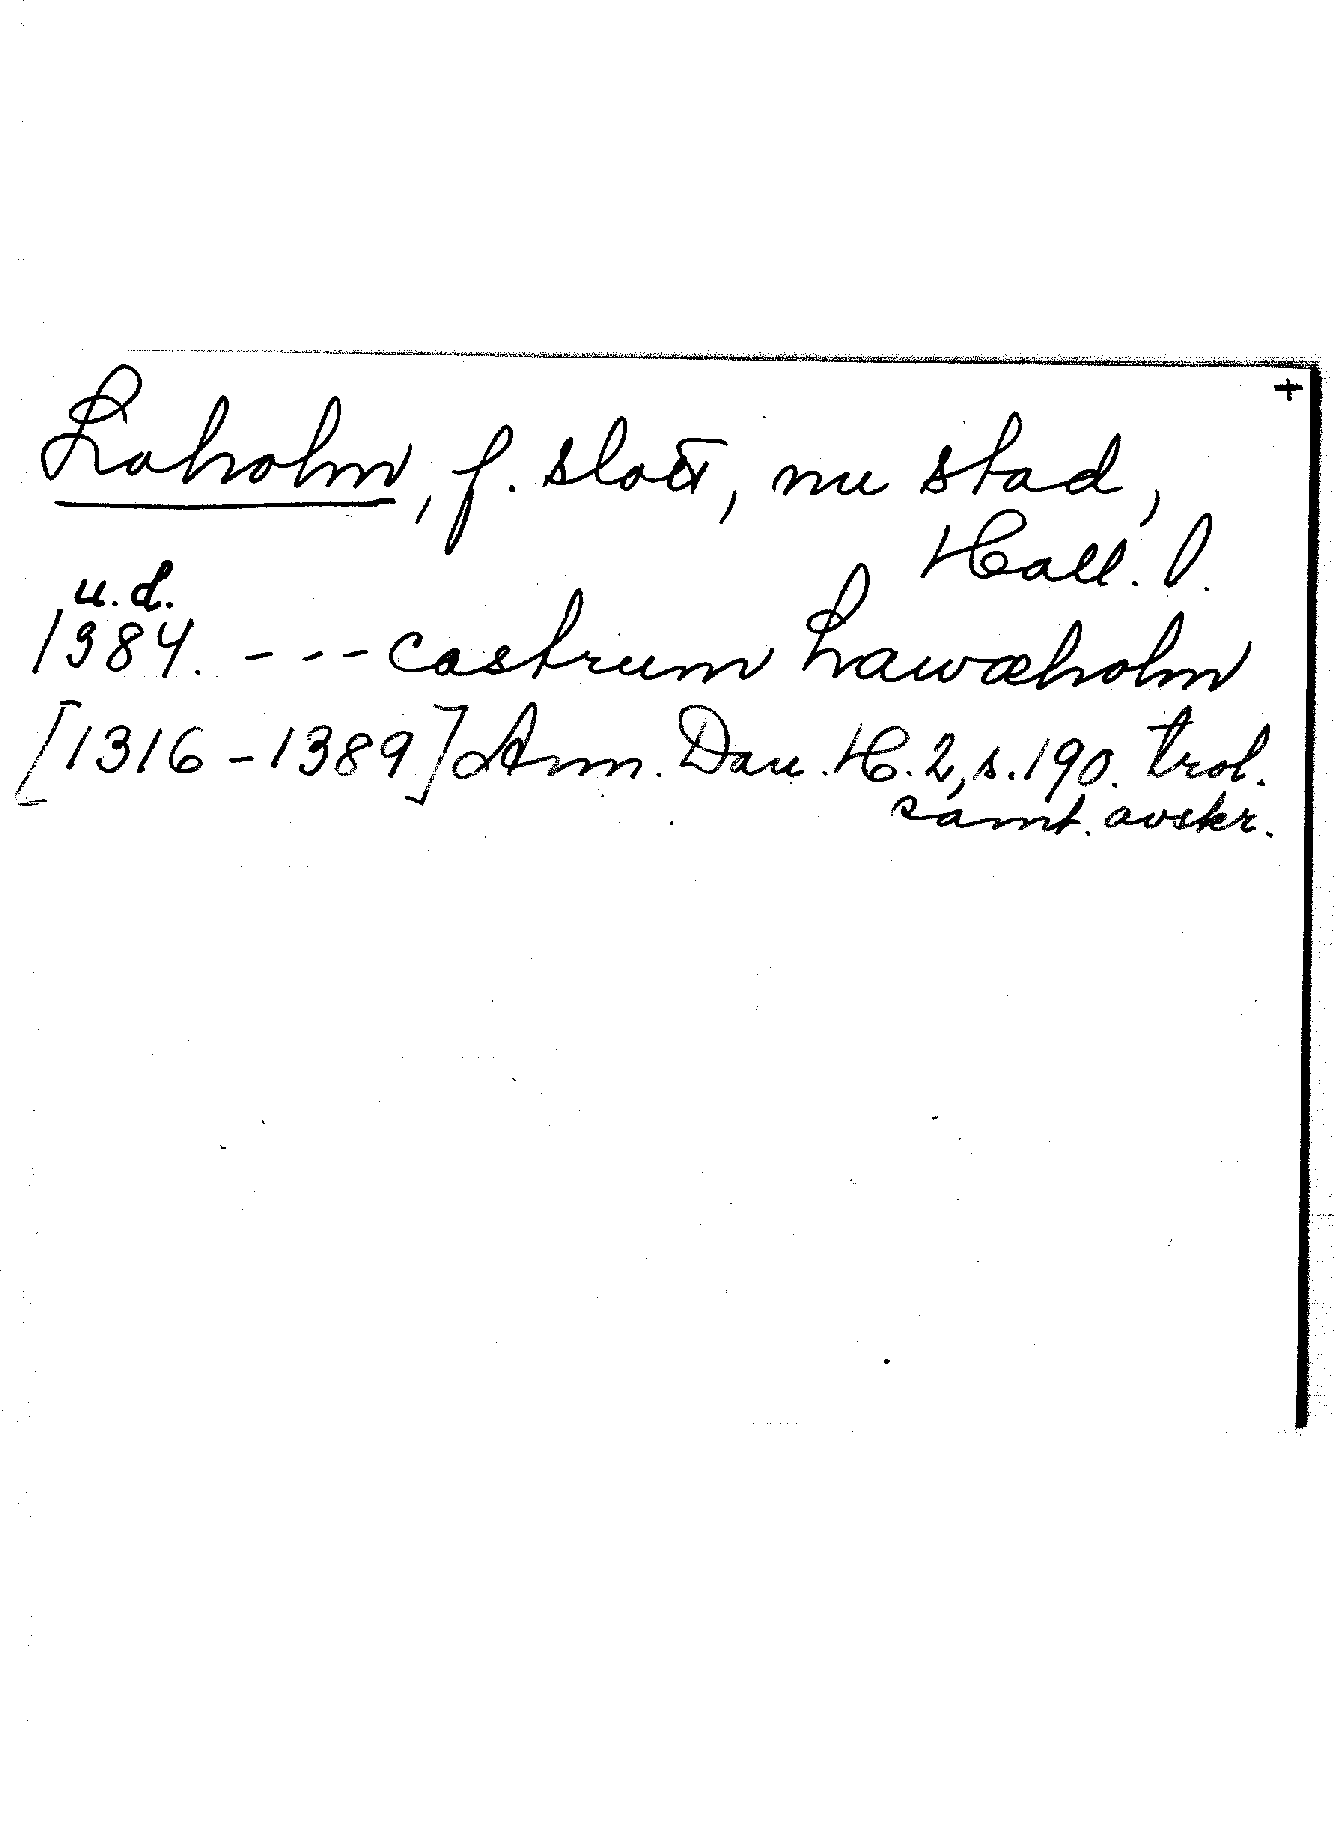 +
Laholm, f. slott, nu stad,
Hall. l.
u. d.
1384. - - - castrum Lawæholm
[1316-1389] Ann. Dan. H. 2, s. 190. trol.
samt. avskr.